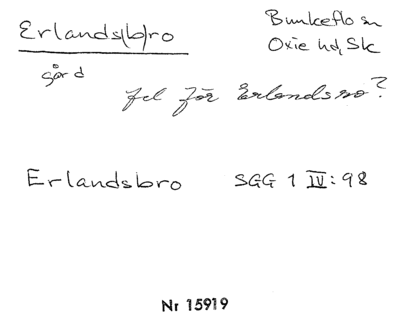 Erlands(b)ro
Bunkeflo sn
Oxie hd, Sk
gård
fel för Erlandsro?
Erlandsbro SGG 1 IV:98
Nr 15919